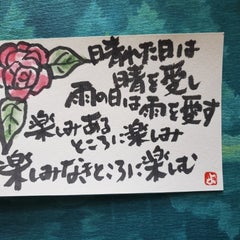 晴れた日は
晴を愛し
雨の日は雨を愛す
楽しみある
ところに楽しみ
楽しみなきところに楽しむ
よ